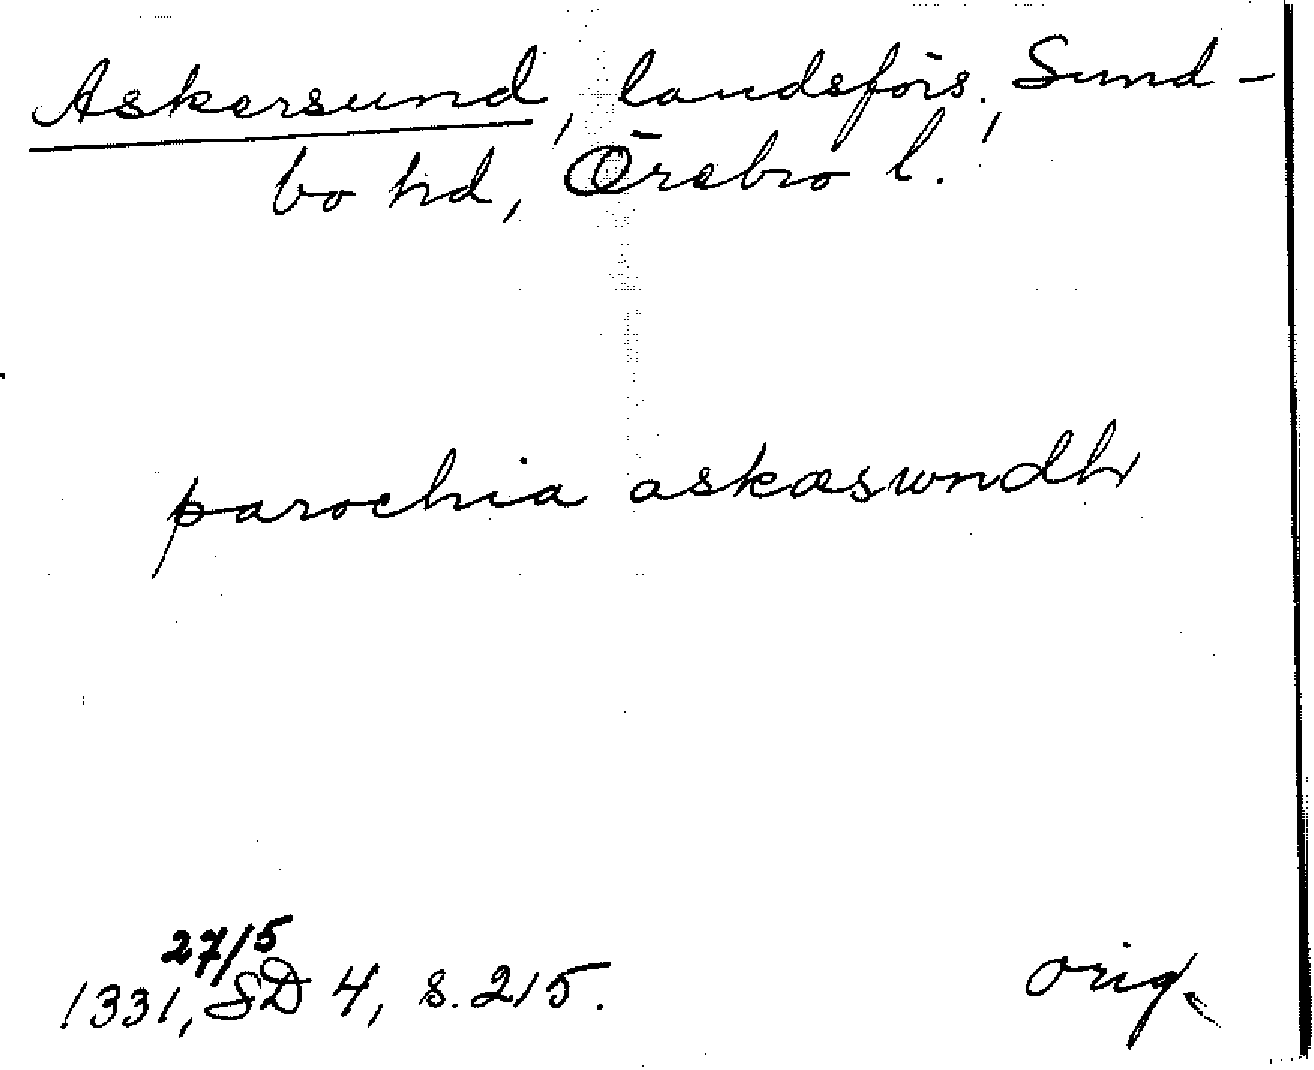 Askersund, landsförs., Sund-
bo hd, Örebro l.
parochia askæswndh
27/5
1331, SD 4, s. 215.
orig.